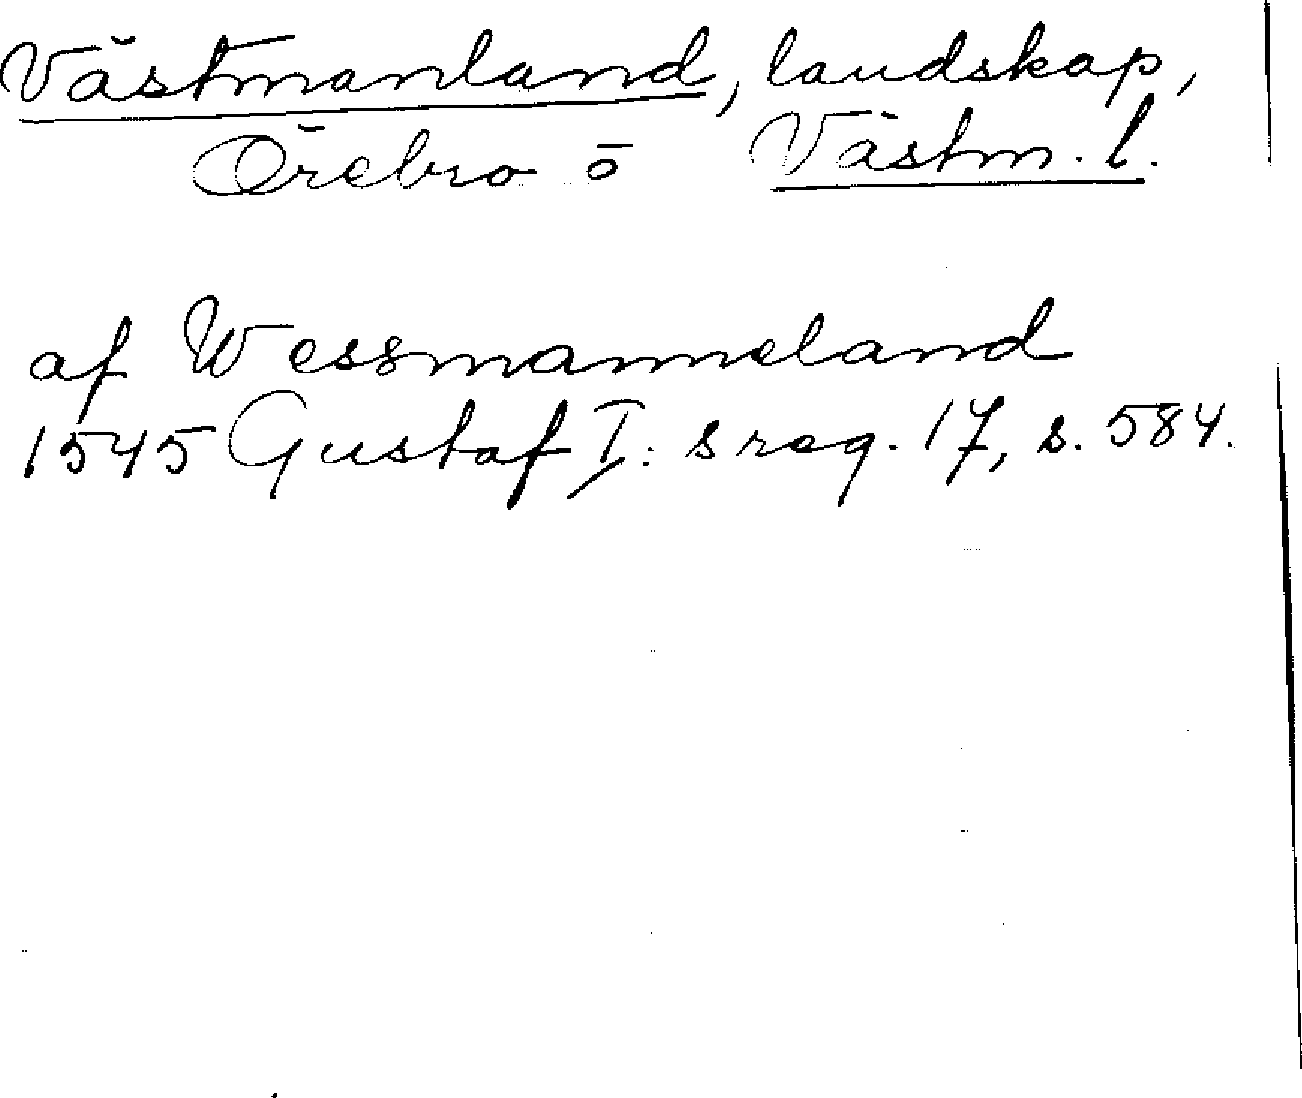 Västmanland, landskap,
Örebro o Västm. l.
af Wessmanneland
1545 Gustaf I: s reg. 17, s. 584.